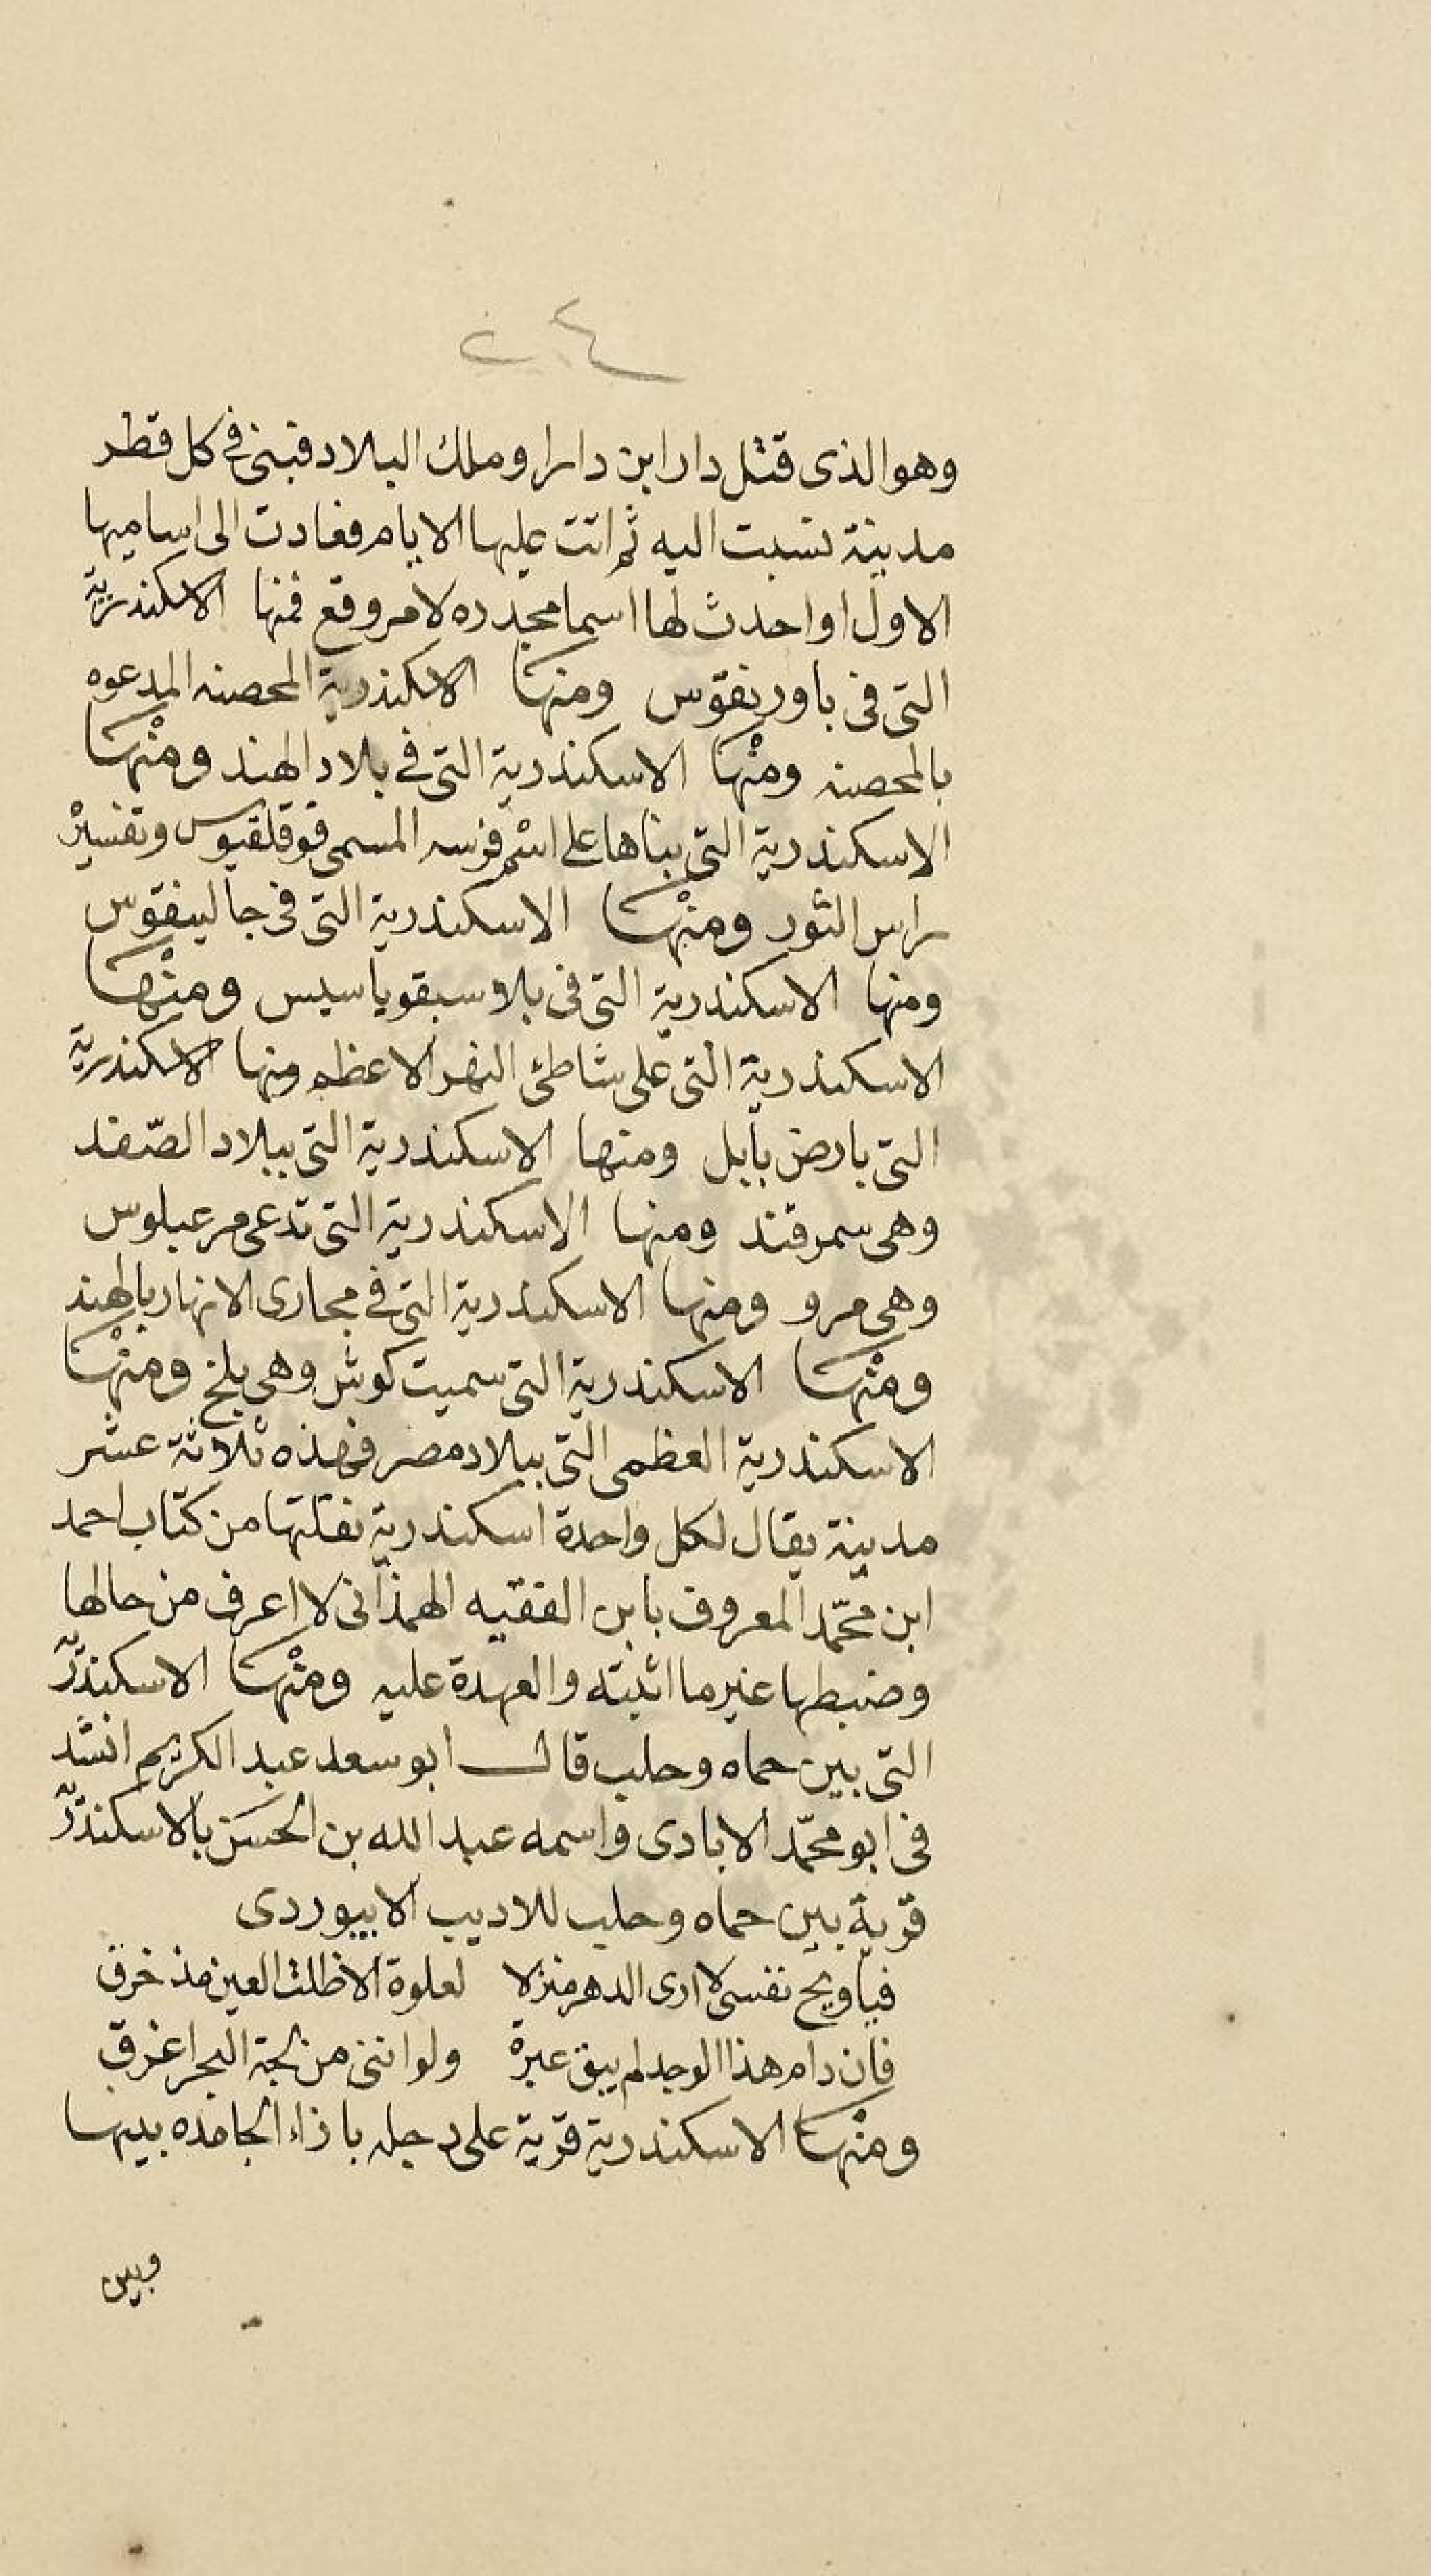 ٢٤
وهو الذى قتل دارا بن دارا وملك البلاد فبنى فى كل قطر
مدينة نسبت اليه ثم اتت عليها الايام فعادت الى اساميها
الاول او احدث لها اسما مجدده لامر وقع فمنها الاسكندرية
التى فى باورنقوس ومنها الاسكندرية المحصنه المدعوه
بالمحصنه ومنها الاسكندرية التى فى بلاد الهند ومنها
الاسكندرية التى بناها على اسم فرسه المسمى قوقلقيوس وتفسيره
راس الثور ومنها الاسكندرية التى فى جالينقوس
ومنها الاسكندرية التى فى بلاد سيقوياسيس ومنها
الاسكندرية التى على شاطئ النهر الاعظم ومنها الاسكندرية
التى بارض بابل ومنها الاسكندرية التى ببلاد الصّغد
وهى سمرقند ومنها الاسكندرية التى تدعى مرعبلوس
وهى مرو ومنها الاسكندرية التى فى مجارى الانهار بالهند
ومنها الاسكندرية التى سميت كوش وهى بلخ ومنها
الاسكندرية العظمى التى ببلاد مصر فهذه ثلاثة عشر
مدينة يقال لكل واحدة اسكندرية نقلتها من كتاب احمد
ابن محمّد المعروف بابن الفقيه الهمذانى لا اعرف من حالها
وضبطها غير ما اثبته والعهدة عليه ومنها الاسكندرّ
التى بين حماه وحلب قال ابو سعد عبد الكريم انشد
فى ابو محمّد الابادى واسمه عبد الله بن الحسن بالاسكندرّ
قرية بين حماه وحلب للاديب الابيوردى
فيا ويح نفسى لا ارى الدهر منزلا لعلوة الا ظلت العين مذ خرق
فان دام هذا الوجد لم يبق عبرة ولو اننى من لجة البحر اغرق
ومنها الاسكندرية قرية على دجله باذاء الجامده بينها
وبين